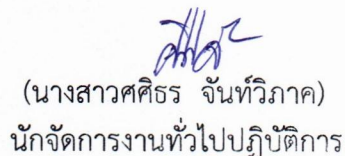 (นางสาวศศิธร จันท์วิภาค)
นักจัดการงานทั่วไปปฏิบัติการ